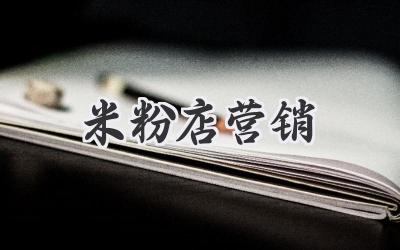 米粉店营销